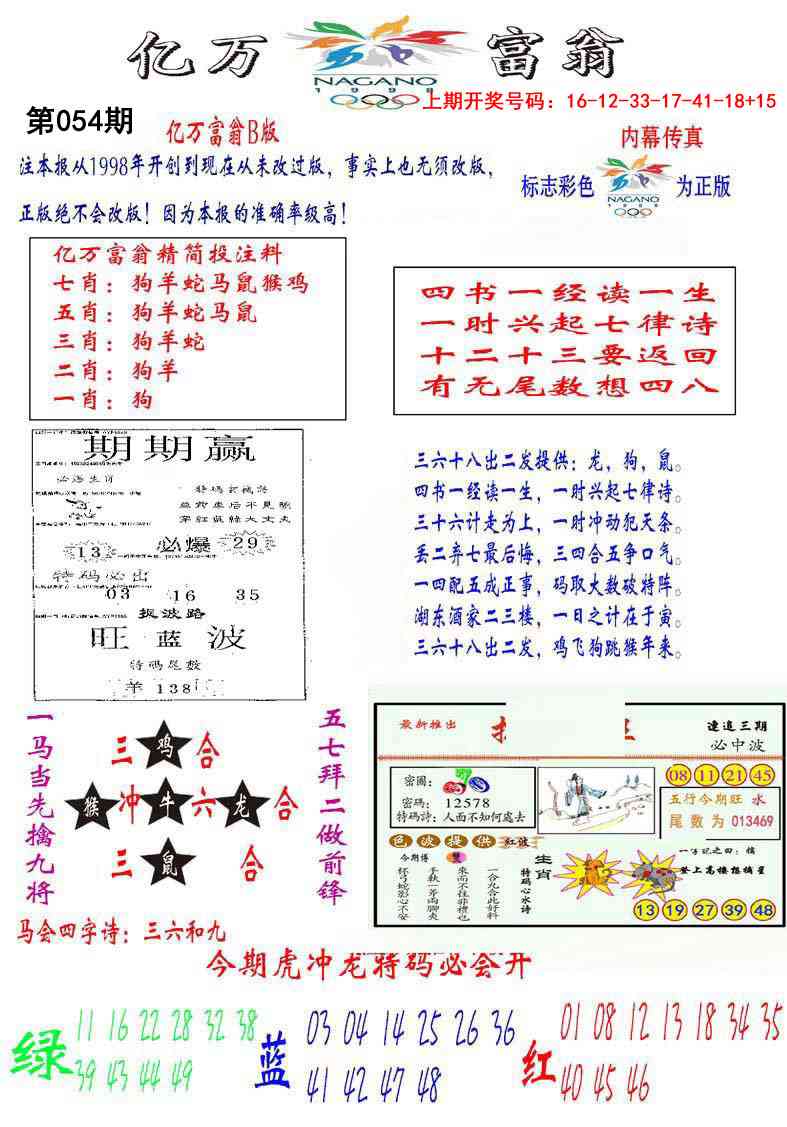 亿万富翁
NAGANO
1998
上期开奖号码：16-12-33-17-41-18+15
第054期
亿万富翁B版
内幕传真
注本报从1998年开创到现在从未改过版，事实上也无须改版，
正版绝不会改版！因为本报的准确率级高！
标志彩色
NAGANO
1998
为正版
亿万富翁精简投注料
七肖：狗羊蛇马鼠猴鸡
五肖：狗羊蛇马鼠
三肖：狗羊蛇
二肖：狗羊
一肖：狗
四书一经读一生
一时兴起七律诗
十二十三要返回
有无尾数想四八
期期赢
必爆
13
29
特码必出
03 16 35
旺蓝波
特码尾数
羊138
三六十八出二发提供：龙，狗，鼠。
四书一经读一生，一时兴起七律诗。
三十六计走为上，一时冲动犯天条。
丢二弃七最后悔，三四合五争口气。
一四配五成正事，码取大数破特阵。
湖东酒家二三楼，一日之计在于寅。
三六十八出二发，鸡飞狗跳猴年来。
一马当先擒九将
三鸡合
猴冲牛六龙合
三鼠合
五七拜二做前锋
最新推出
连追三期
必中波
08 11 21 45
密圈：
密码：12578
特码詩：人面不知何處去
五行今期旺 水
尾数为 013469
色波提供 红波
今期博
杯弓蛇影心不安
來而不往非禮也
一合九合此好料
特码心水诗
生肖
登上高楼想摘星
13 19 27 39 48
马会四字诗：三六和九
今期虎冲龙特码必会开
绿
11 16 22 28 32 38
39 43 44 49
蓝
03 04 14 25 26 36
41 42 47 48
红
01 08 12 13 18 34 35
40 45 46